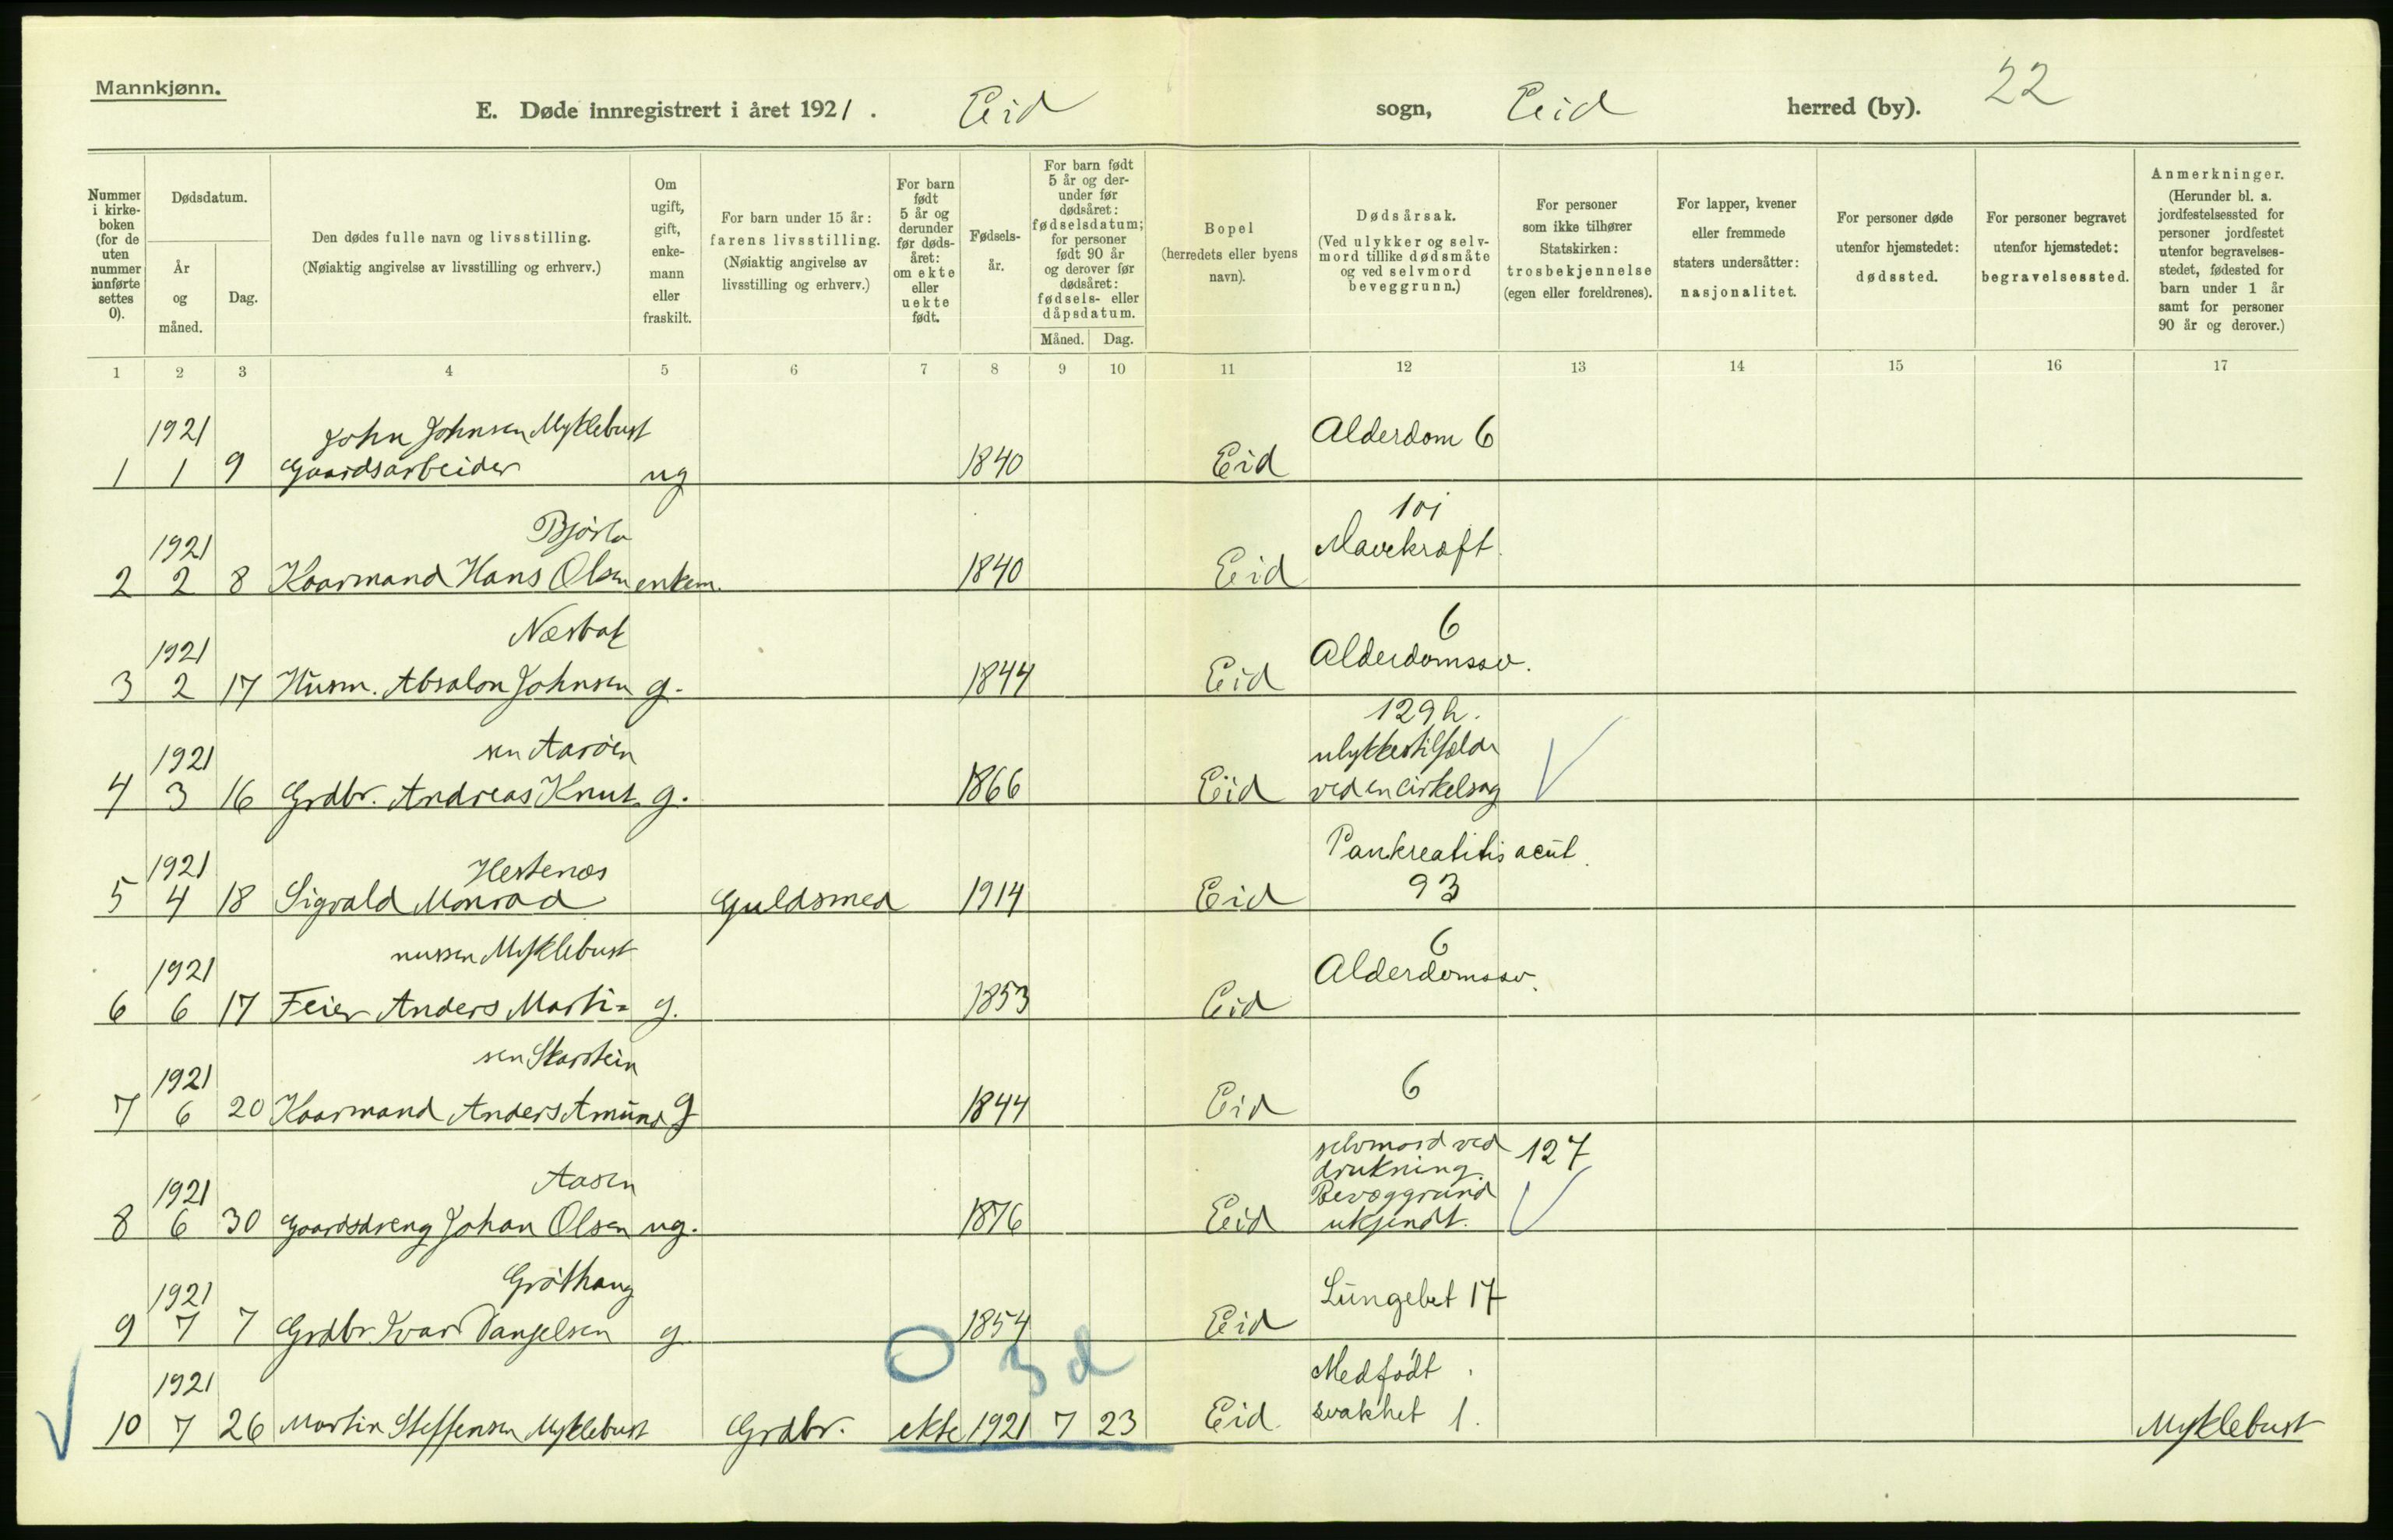 Mannkjønn.
E. Døde innregistrert i året 1921. Eid sogn, Eid herred (by). 22
Nummer i kirke-boken (for de uten nummer innførte settes 0).
Dødsdatum.
År og måned.
Dag.
Den dødes fulle navn og livsstilling.
(Nøiaktig angivelse av livsstilling og erhverv.)
Om ugift, gift, enke-mann eller fraskilt.
For barn under 15 år: farens livsstilling. (Nøiaktig angivelse av livsstilling og erhverv.)
For barn født 5 år og derunder før døds-året: om ekte eller uekte født.
Fødsels-år.
For barn født 5 år og der-under før dødsåret: fødselsdatum; for personer født 90 år og derover før dødsåret: fødsels- eller dåpsdatum.
Måned. Dag.
Bopel (herredets eller byens navn).
Dødsårsak. (Ved ulykker og selv-mord tillike dødsmåte og ved selvmord beveggrunn.)
For personer som ikke tilhører Statskirken: trosbekjennelse (egen eller foreldrenes).
For lapper, kvener eller fremmede staters undersåtter: nasjonalitet.
For personer døde utenfor hjemstedet: dødssted.
For personer begravet utenfor hjemstedet: begravelsessted.
Anmerkninger. (Herunder bl. a. jordfestelsessted for personer jordfestet utenfor begravelses-stedet, fødested for barn under 1 år samt for personer 90 år og derover.)
1 2 3 4 5 6 7 8 9 10 11 12 13 14 15 16 17
1921 John Johnsen Myklebust Alderdom 6
1 1 9 Gaardsarbeider ug 1840 Eid
1921 Bjørlo 101 Mavekræft.
2 2 8 Kaarmand Hans Olsen enkem. 1840 Eid
1921 6 Alderdomssv.
3 2 17 Husm. Absalon Johnsen g. 1844 Eid
1921 sen Aarøen 129 h. ulykkestilfælde
4 3 16 Grdbr. Andreas Knut g. 1866 Eid ved en cirkelsag
1921 Hestenæs Pankreatitis acut.
5 4 18 Sigvald Monrad Guldsmed 1914 Eid 93
1921 nussen Myklebust 6 Alderdomssv.
6 6 17 Feier Anders Marti= g. 1853 Eid
1921 sen Skarstein 6
7 6 20 Kaarmand Anders Amund g 1844 Eid
1921 Aasen selvmord ved 127
drukning.
Bevæggrund
8 6 30 Gaardsdreng Johan Olsen ug. 1876 Eid ukjendt.
1921 Grøthaug Lungebet 17
9 7 7 Grdbr Ivar Danjelsen g 1854 Eid
0 3 d
1921 Medfødt
10 7 26 Martin Steffensen Myklebust Grdbr. ekte 1921 7 23 Eid. svakhet 1. Myklebust